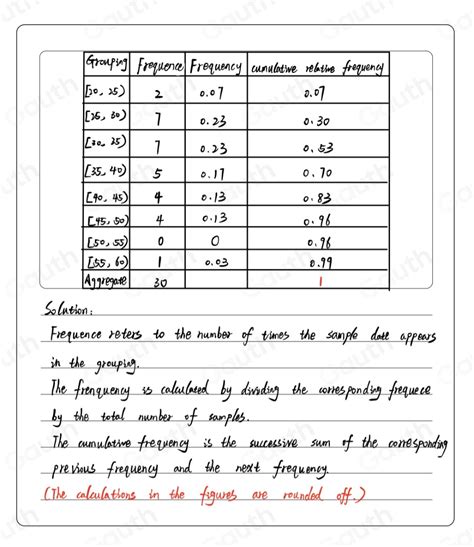 Grouping Frequence Frequency cumulative relative frequency
[20, 25) 2 0.07 0.07
[25, 30) 7 0.23 0.30
[30, 35) 7 0.23 0.53
[35, 40) 5 0.17 0.70
[40, 45) 4 0.13 0.83
[45, 50) 4 0.13 0.96
[50, 55) 0 0 0.96
[55, 60) 1 0.03 0.99
Aggregate 30 1
Solution:
Frequence reters to the number of times the sample date appears
in the grouping.
The frenquency is calculated by dividing the corresponding frequece
by the total number of samples.
The cumulative frequency is the successive sum of the corresponding
previous frequency and the next frequency.
(The calculations in the figures are rounded off.)